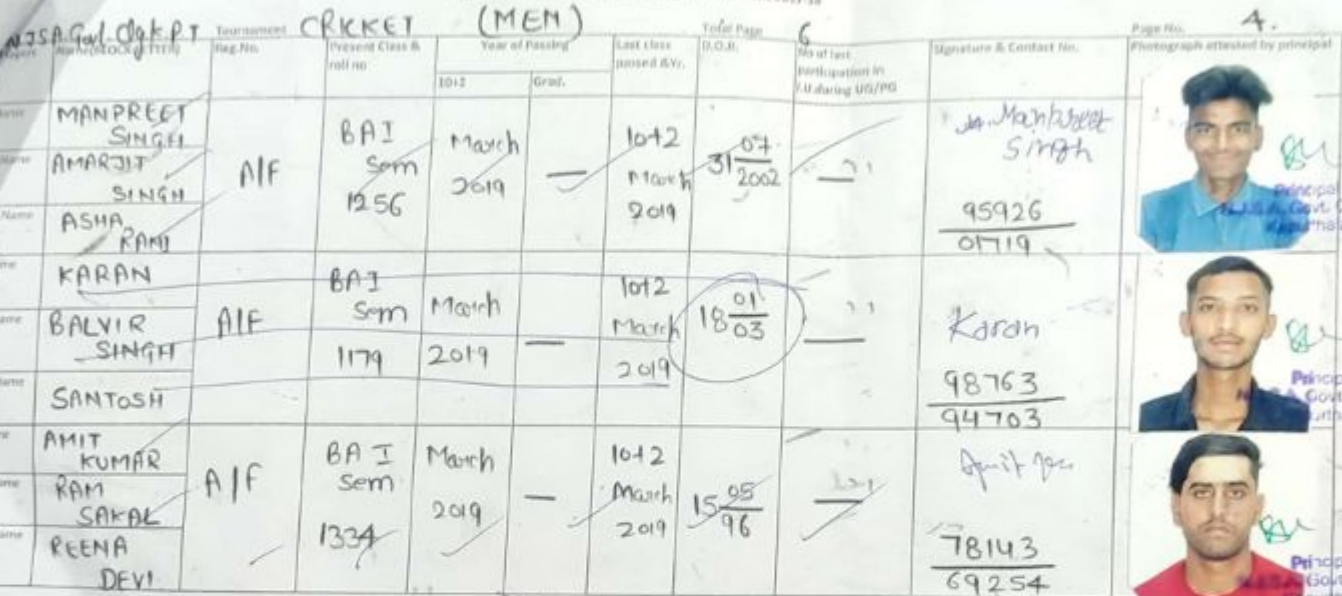 NJSA Govt. Clg K.P.T Tournament CRICKET (MEN) Total Page 6 Page No. 4.
Reg.No. Present Class & roll no Year of Passing Last class passed &Yr. D.O.B. No of last participation in I.U during UG/PG Signature & Contact No. Photograph attested by principal
10+2 Grad.
MANPREET SINGH
AMARJIT SINGH
ASHA RANI
A/F
BA I Sem 1256
March 2019
—
10+2 March 2019
31 07 2002
—
Manpreet Singh
95926
01719
Principal
KARAN
BALVIR SINGH
SANTOSH
A/F
BA I Sem 1179
March 2019
—
10+2 March 2019
18 01 03
—
Karan
98763
94703
AMIT KUMAR
RAM SAKAL
REENA DEVI
A/F
BA I Sem 1334
March 2019
—
10+2 March 2019
15 05 96
—
78143
69254